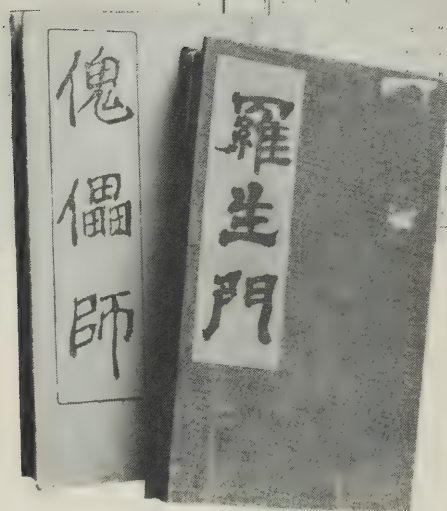 傀儡師
羅生門